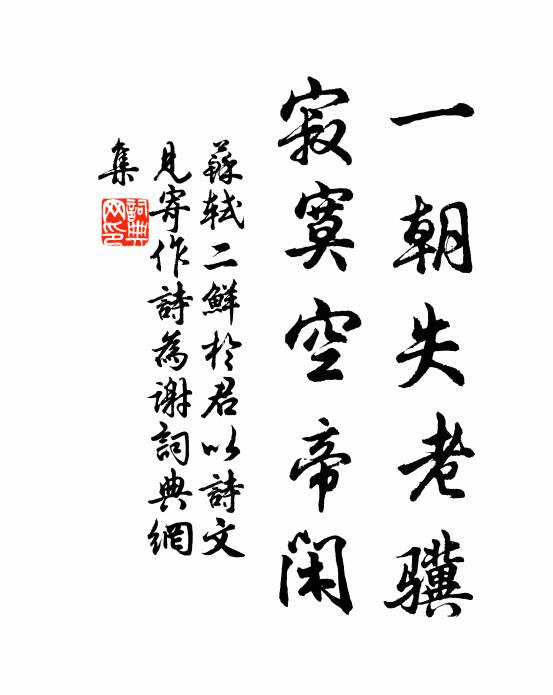 一朝失老骥
寂寞空帝闲
蘇軾二鮮於君以詩文
見寄作詩為谢詞典網
集
詞典網印